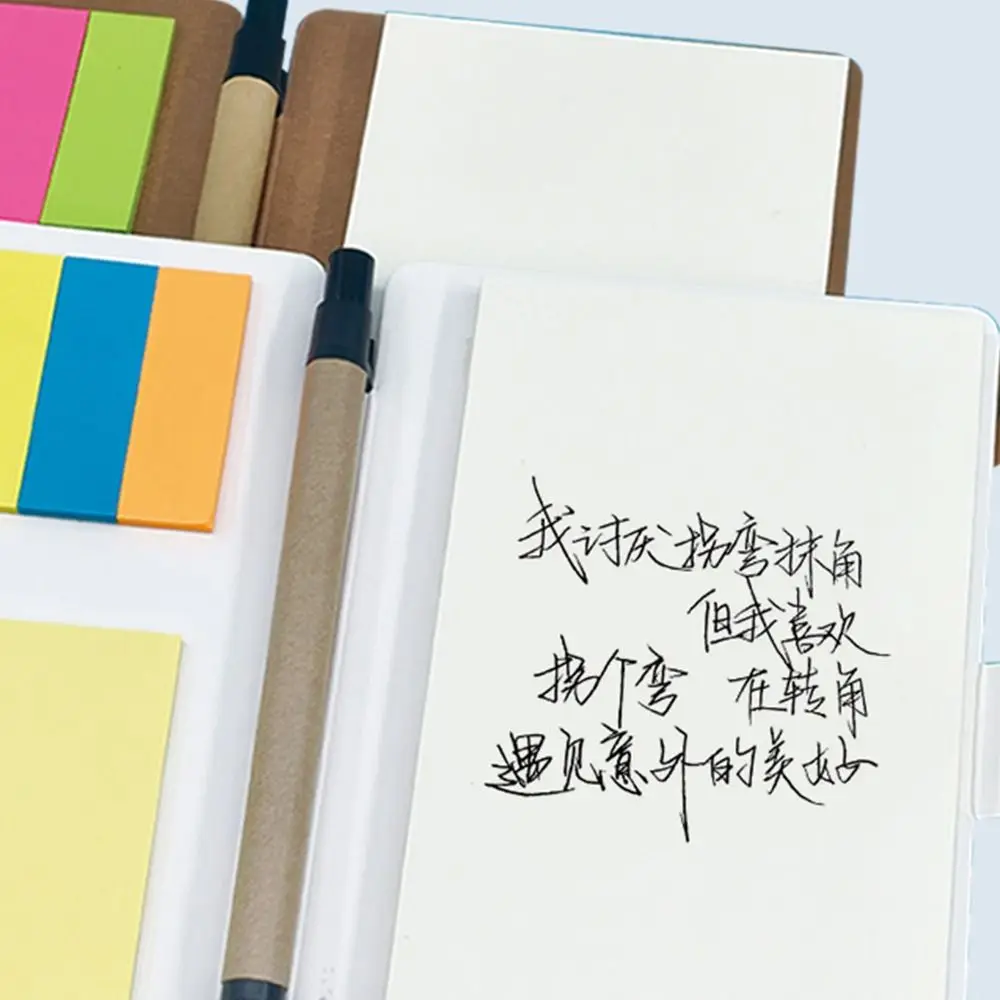 我讨厌拐弯抹角
但我喜欢
拐个弯 在转角
遇见意外的美好